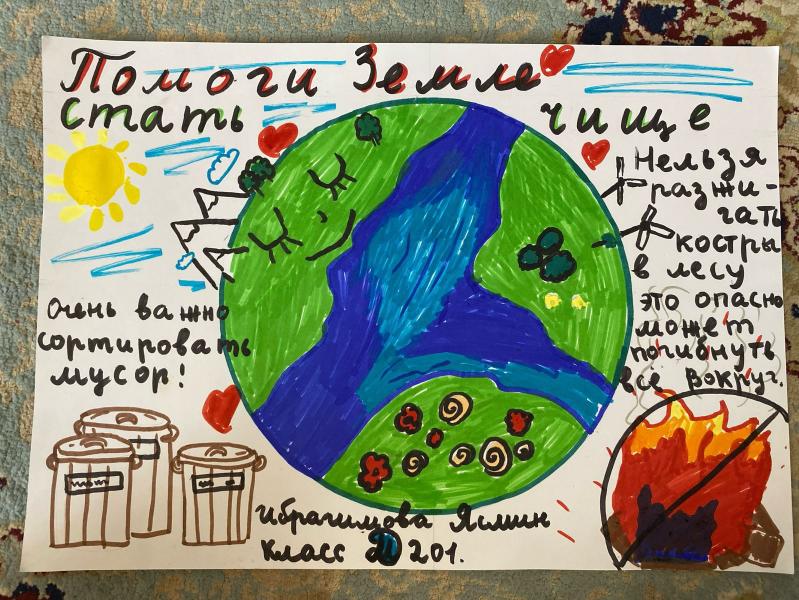 Помоги Земле
стать чище
Нельзя
разжи-
гать
костры
в лесу
это опасно
может
погибнуть
всё вокруг.
Очень важно
сортировать
мусор!
Ибрагимова Ясмин
Класс 201.